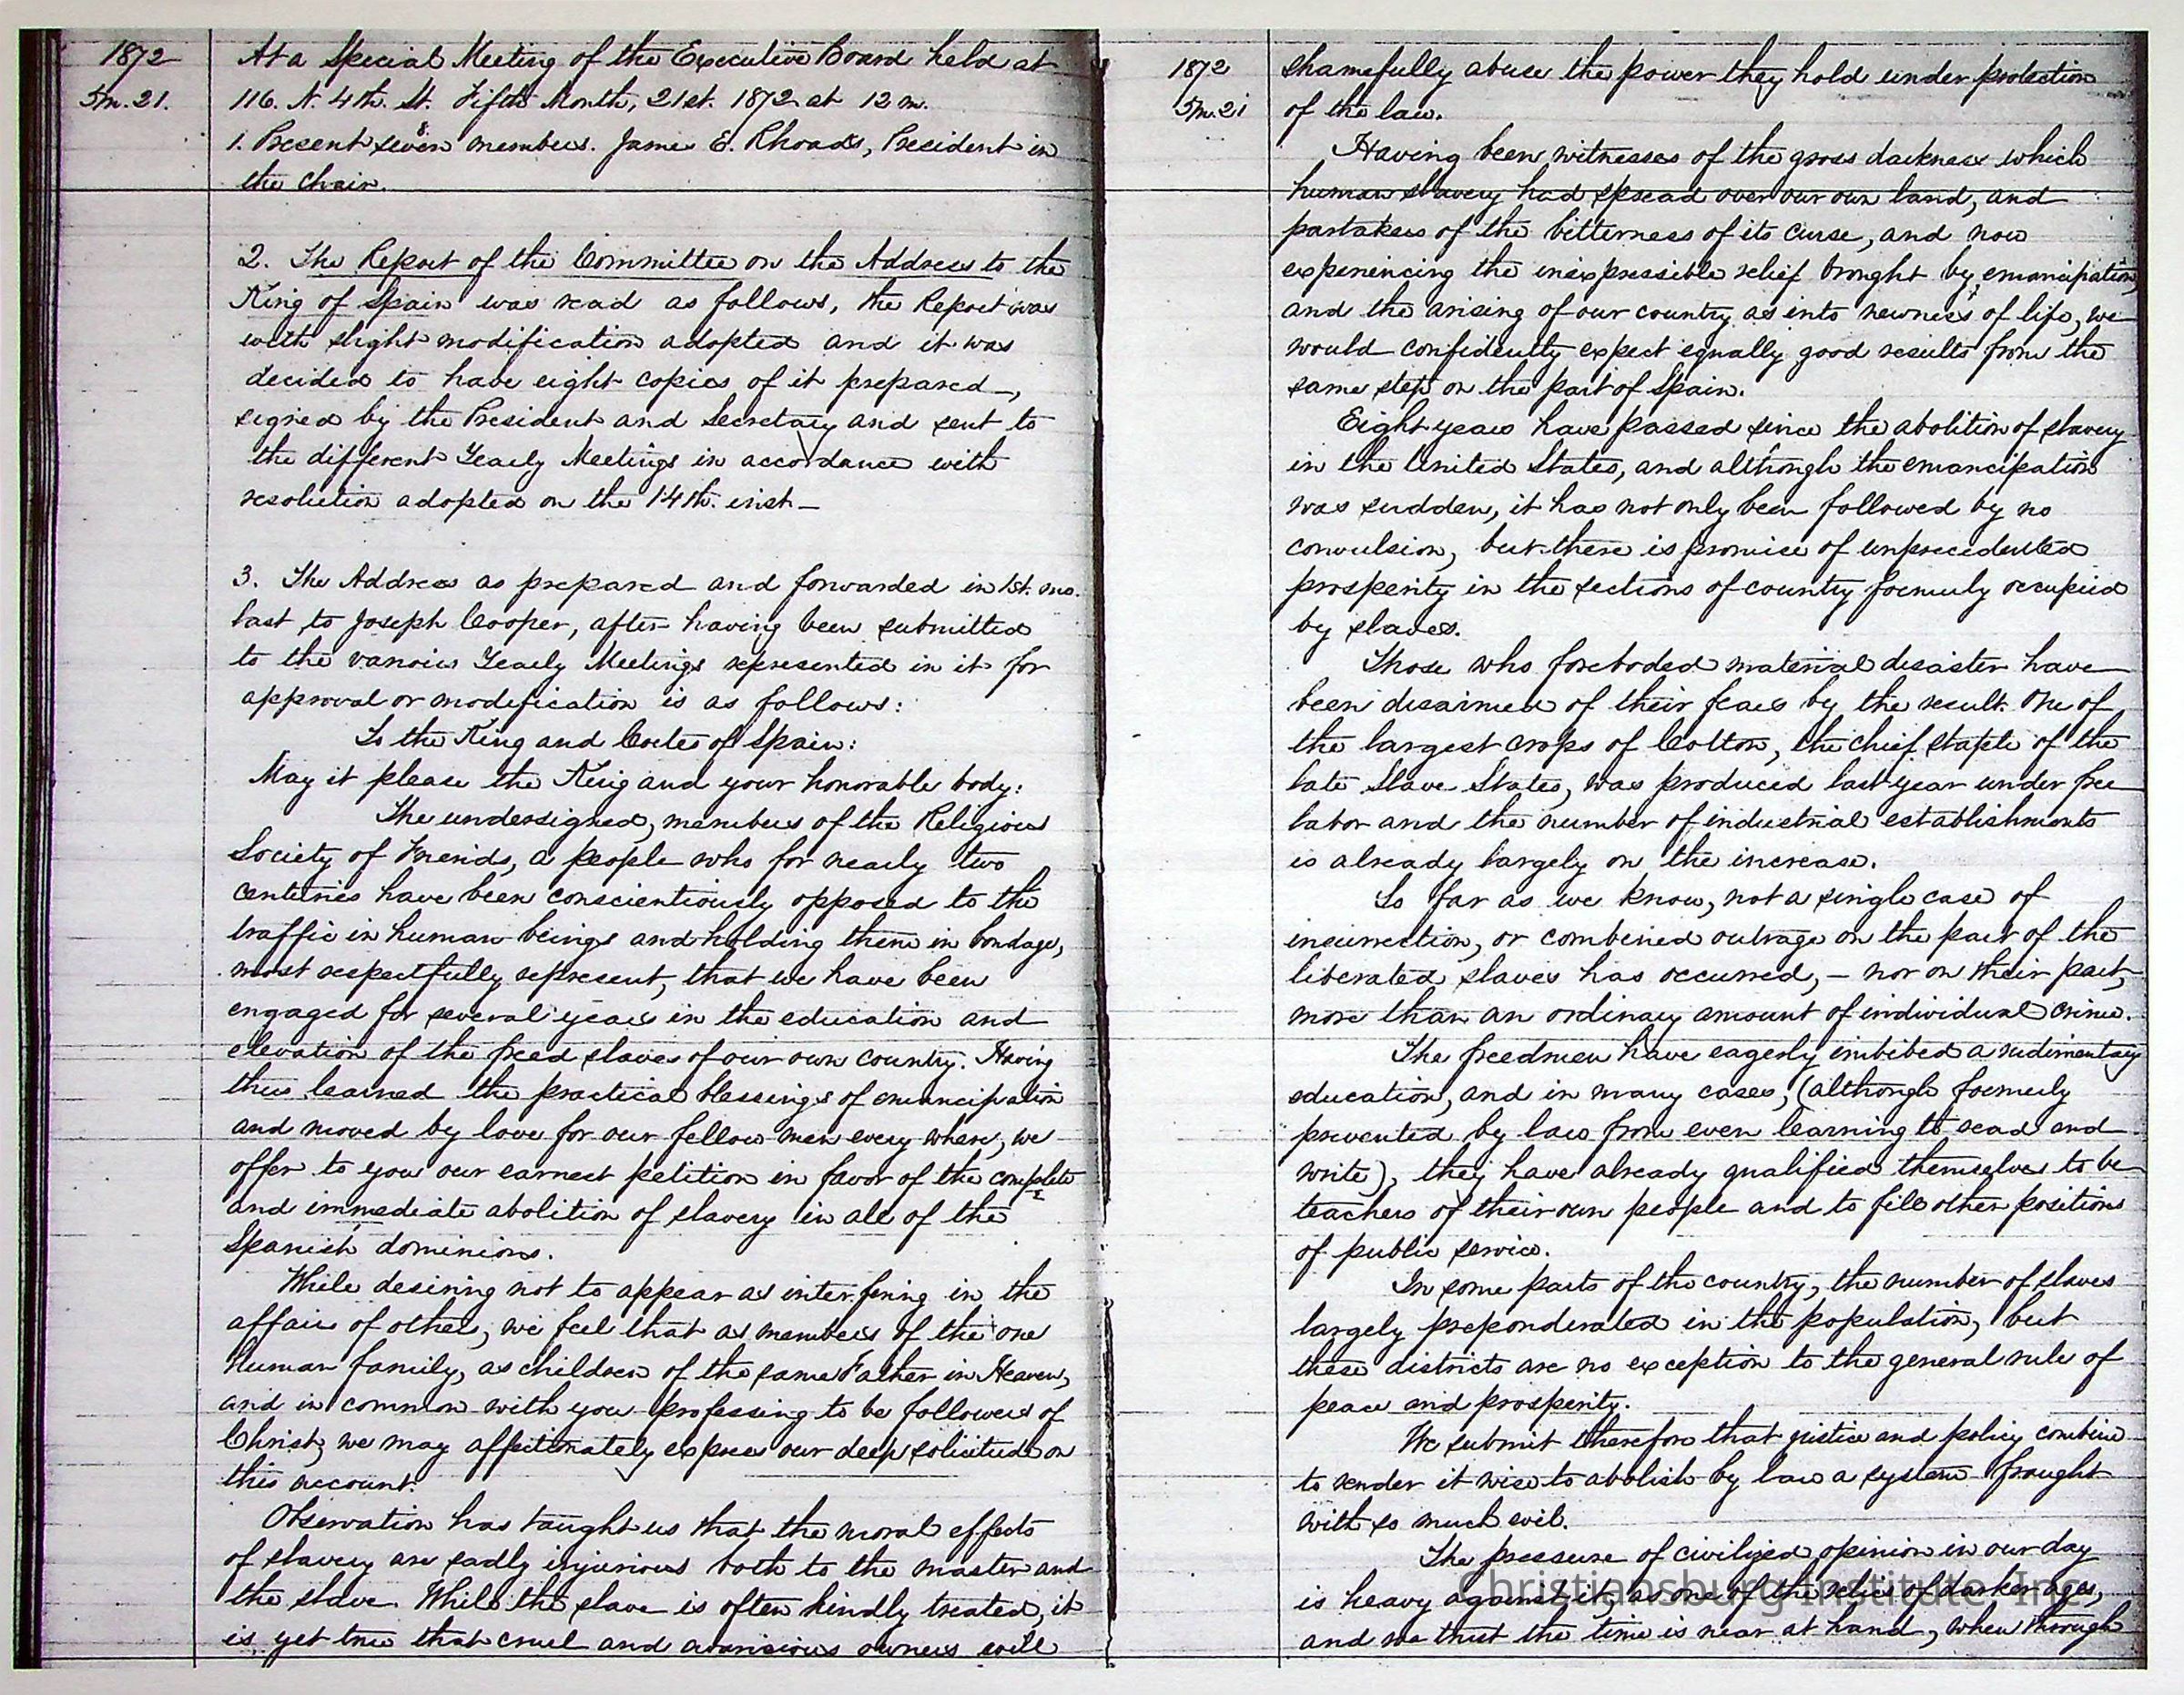 1872
5m. 21.
At a Special Meeting of the Executive Board held at
116. N. 4th. St. Fifth Month, 21st. 1872 at 12 m.
1. Present seven members. James E. Rhoads, President in
8
the chair.
2. The Report of the Committee on the Address to the
King of Spain was read as follows, the Report was
with slight modification adopted and it was
decided to have eight copies of it prepared,
signed by the President and Secretary and sent to
the different Yearly Meetings in accordance with
resolution adopted on the 14th. inst.—
3. The Address as prepared and forwarded in 1st. mo.
last to Joseph Cooper, after having been submitted
to the various Yearly Meetings represented in it for
approval or modification is as follows:
To the King and Cortes of Spain:
May it please the King and your honorable body:
The undersigned, members of the Religious
Society of Friends, a people who for nearly two
centuries have been conscientiously opposed to the
traffic in human beings and holding them in bondage,
most respectfully represent, that we have been
engaged for several years in the education and
elevation of the freed slaves of our own country. Having
thus learned the practical blessings of emancipation
and moved by love for our fellow men every where, we
offer to you our earnest petition in favor of the complete
and immediate abolition of slavery in all of the
Spanish dominions.
While desiring not to appear as interfering in the
affairs of others, we feel that as members of the one
human family, as children of the same Father in Heaven,
and in common with you professing to be followers of
Christ, we may affectionately express our deep solicitude on
this account.
Observation has taught us that the moral effects
of slavery are sadly injurious both to the master and
the slave. While the slave is often kindly treated, it
is yet true that cruel and avaricious owners will
1872
5m. 21
shamefully abuse the power they hold under protection
of the law.
Having been witnesses of the gross darkness which
human slavery had spread over our own land, and
partakers of the bitterness of its curse, and now
experiencing the inexpressible relief brought by emancipation,
and the arising of our country as into newness of life, we
would confidently expect equally good results from the
same step on the part of Spain.
Eight years have passed since the abolition of slavery
in the United States, and although the emancipation
was sudden, it has not only been followed by no
convulsion, but there is promise of unprecedented
prosperity in the sections of country formerly occupied
by slaves.
Those who foreboded material disaster have
been disarmed of their fears by the result. One of
the largest crops of Cotton, the chief staple of the
late Slave States, was produced last year under free
labor and the number of industrial establishments
is already largely on the increase.
So far as we know, not a single case of
insurrection, or combined outrage on the part of the
liberated slaves has occurred, — nor on their part,
more than an ordinary amount of individual crime.
The freedmen have eagerly imbibed a rudimentary
education, and in many cases, (although formerly
prevented by law from even learning to read and
write), they have already qualified themselves to be
teachers of their own people and to fill other positions
of public service.
In some parts of the country, the number of slaves
largely preponderated in the population, but
these districts are no exception to the general rule of
peace and prosperity.
We submit therefore that justice and policy combine
to render it wise to abolish by law a system fraught
with so much evil.
The pressure of civilized opinion in our day
is heavy against it, as one of the relics of darker ages,
and we trust the time is near at hand, when through
Christiansburg Institute, Inc.